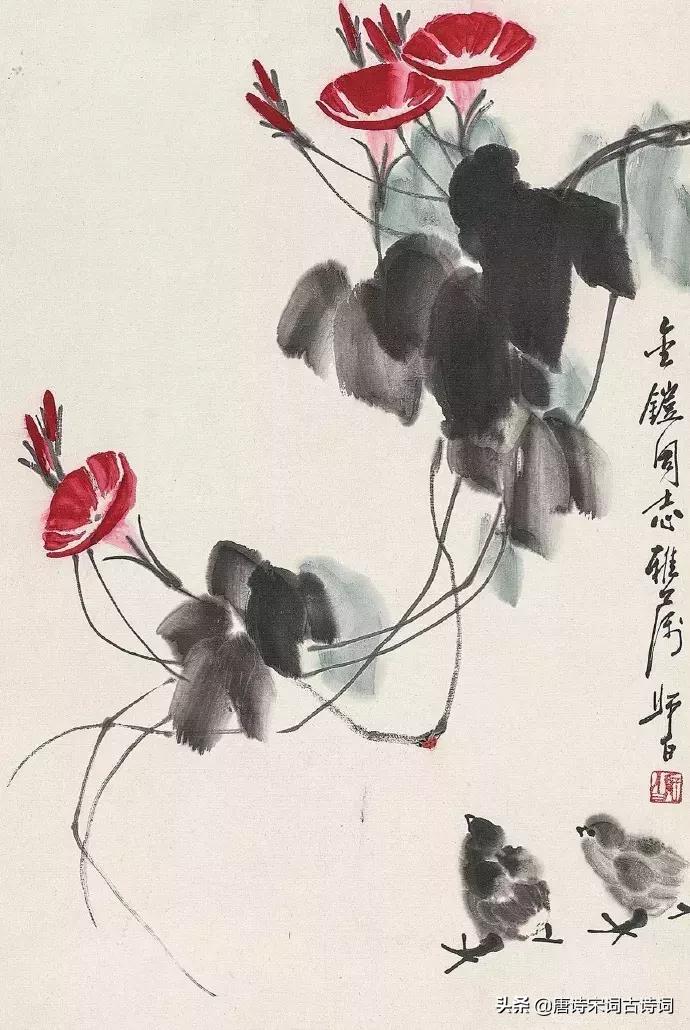 金鎧同志雅属 师白
头条 @唐诗宋词古诗词